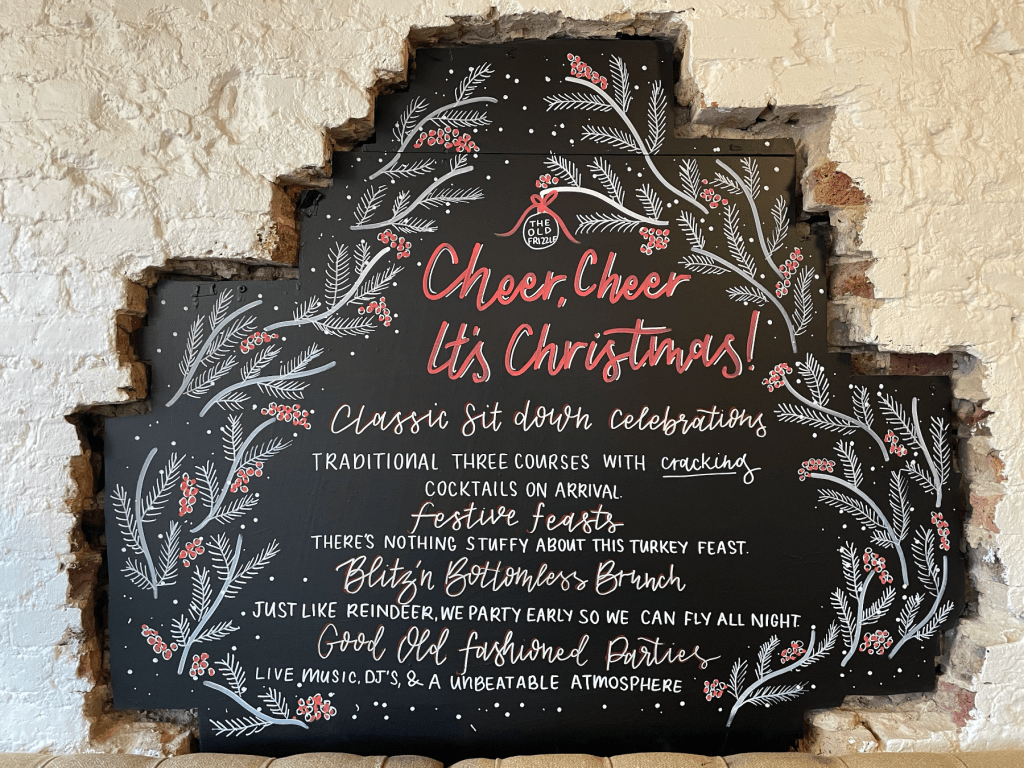 THE
OLD
FRIZZLE
Cheer, Cheer
It's Christmas!
Classic Sit down Celebrations
TRADITIONAL THREE COURSES WITH cracking
COCKTAILS ON ARRIVAL.
festive feasts
THERE'S NOTHING STUFFY ABOUT THIS TURKEY FEAST.
Blitz'n Bottomless Brunch
JUST LIKE REINDEER, WE PARTY EARLY SO WE CAN FLY ALL NIGHT.
Good Old fashioned Parties
LIVE MUSIC, DJ'S, & A UNBEATABLE ATMOSPHERE